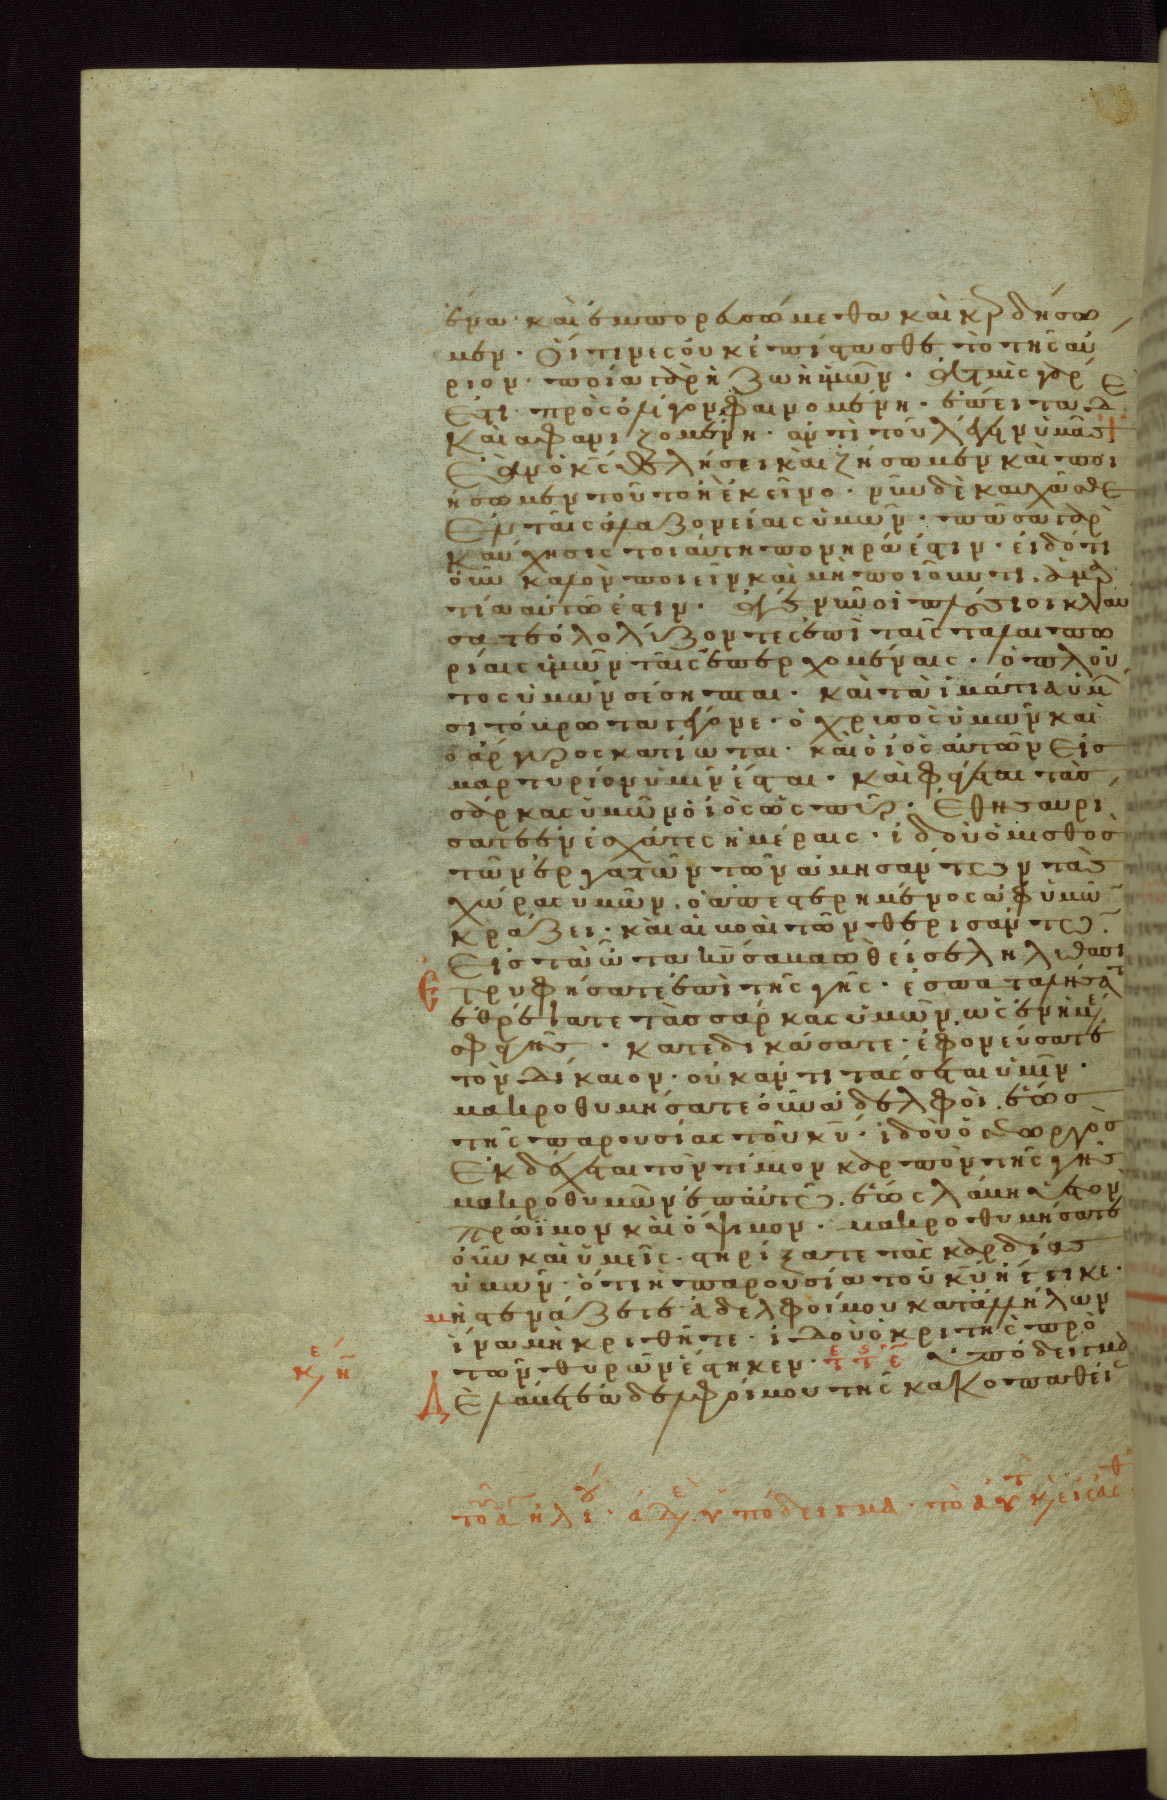 ἕνα· καὶ ἐμπορευσώμεθα καὶ κερδήσω
μεν. οἵτινες οὐκ ἐπίστασθε τὸ τῆς αὔ
ριον· ποία γὰρ ἡ ζωὴ ἡμῶν. ἀτμὶς γάρ
ἐστι πρὸς ὀλίγον φαινομένη. ἔπειτα δὲ
καὶ ἀφανιζομένη. ἀντὶ τοῦ λέγειν ὑμᾶς
ἐὰν ὁ κς θελήσει καὶ ζήσωμεν καὶ ποι
ήσωμεν τοῦτο ἢ ἐκεῖνο. νῦν δὲ καυχᾶσθε
ἐν ταῖς ἀλαζονείαις ὑμῶν. πᾶσα γὰρ
καύχησις τοιαύτη πονηρά ἐστιν. εἰδότι
οὖν καλὸν ποιεῖν καὶ μὴ ποιοῦντι. ἁμαρ
τία αὐτῶ ἐστιν. ἄγε νῦν οἱ πλούσιοι κλαύ
σατε ὀλολύζοντες ἐπὶ ταῖς ταλαιπω
ρίαις ὑμῶν ταῖς ἐπερχομέναις. ὁ πλοῦ
τος ὑμῶν σέσηπται. καὶ τὰ ἱμάτια ὑμῶν
σιτόβρωτα γέγονε. ὁ χρυσὸς ὑμῶν καὶ
ὁ ἄργυρος κατίωται. καὶ ὁ ἰὸς αὐτῶν εἰς
μαρτύριον ὑμῖν ἔσται. καὶ φάγεται τὰς
σάρκας ὑμῶν ὁ ἰὸς ὡς πῦρ. ἐθησαυρί
σατε ἐν ἐσχάτες ἡμέραις. ἰδοὺ ὁ μισθὸς
τῶν ἐργατῶν τῶν ἀμησάντων τὰς
χώρας ὑμῶν. ὁ ἀπεστερημένος ἀφ ὑμῶν
κράζει. καὶ αἱ βοαὶ τῶν θερισάντων
εἰς τὰ ὦτα κυ σαβαὼθ εἰσεληλύθασι
ἐτρυφήσατε ἐπὶ τῆς γῆς. ἐσπαταλήσατε
ἐθρέψατε τὰς σάρκας ὑμῶν ὡς ἐν ἡμέρα
σφαγῆς. κατεδικάσατε. ἐφονεύσατε
τὸν δίκαιον. οὐκ ἀντιτάσσεται ὑμῖν.
μακροθυμήσατε οὖν ἀδελφοὶ. ἕως
τῆς παρουσίας τοῦ κυ. ἰδοὺ ὁ γεωργὸς
ἐκδέχεται τὸν τίμιον καρπὸν τῆς γῆς
μακροθυμῶν ἐπ αὐτῶ. ἕως λάβη ὑετὸν
πρώϊμον καὶ ὄψιμον. μακροθυμήσατε
οὖν καὶ ὑμεῖς. στηρίξατε τὰς καρδίας
ὑμῶν. ὅτι ἡ παρουσία τοῦ κυ ἤγγικε.
μὴ στενάζετε ἀδελφοί μου κατ ἀλλήλων
ἵνα μὴ κριθῆτε. ἰδοὺ ὁ κριτὴς πρὸ
τῶν θυρῶν ἕστηκεν. ὑπόδειγμα
λάβετε ἀδελφοί μου τῆς κακοπαθεί